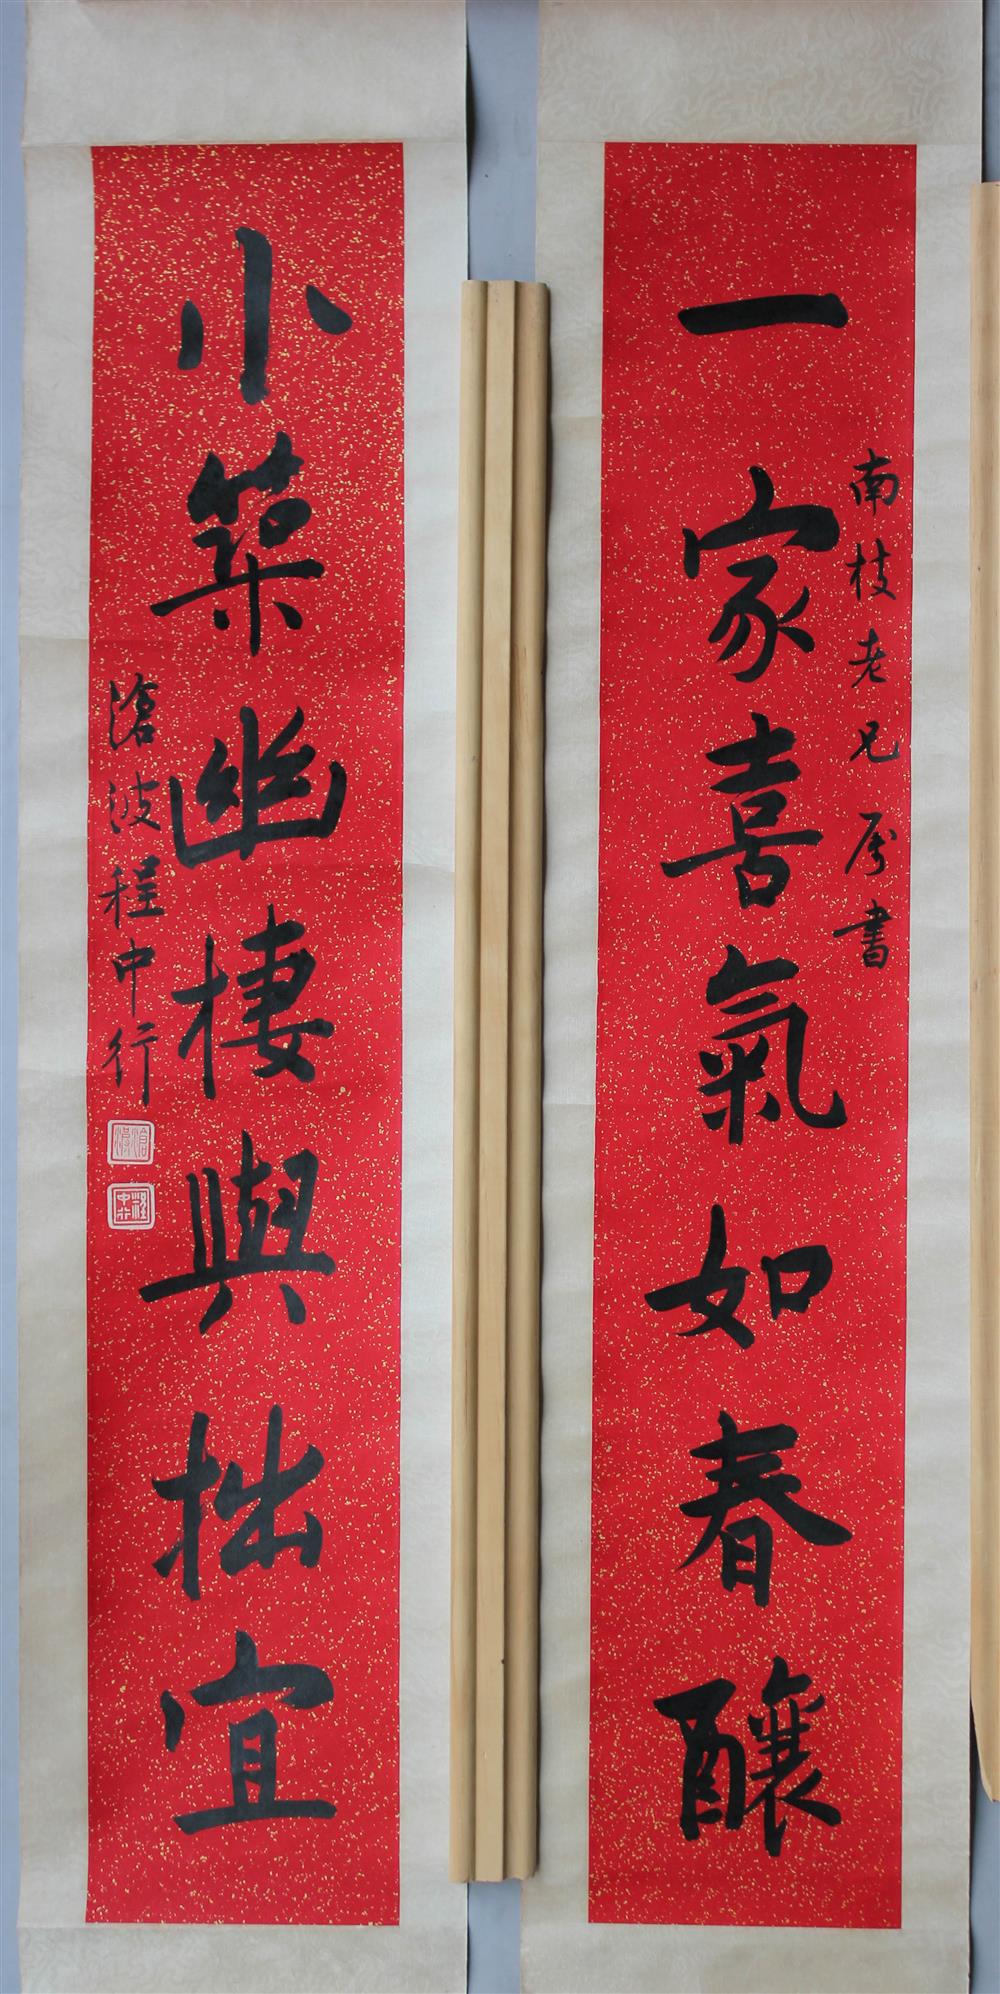 一家喜氣如春釀
南枝老兄属書
小築幽棲與拙宜
滄波程中行
滄波
程中行